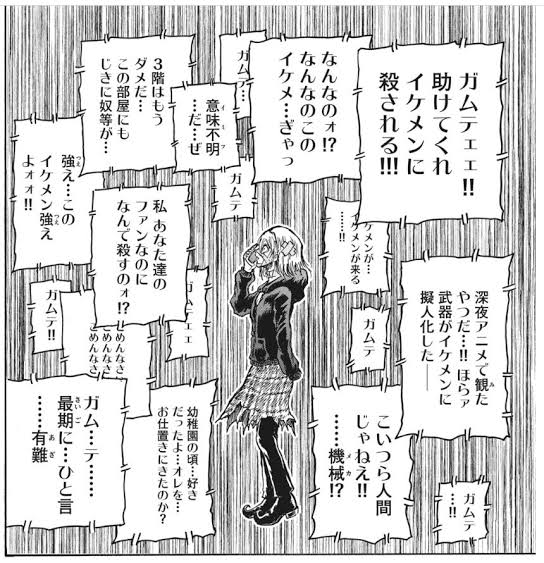 ガムテェェ!!
助けてくれ
イケメンに
殺される!!!
なんなのォ!?
なんなのこの
イケメ…ぎゃっ
ガムテ…
意味不明
イミフ
…だ…ぜ
3階はもう
ダメだ…
この部屋にも
じきに奴等が…
ガムテ
強え…この
つえ
イケメン強え
つえ
よォォ!!
私 あなた達の
ファンなのに
なんで殺すのォ!?
イケメンが…
イケメンが来る
……!!
深夜アニメで観た
み
やつだ…!!ほらァ
武器がイケメンに
擬人化した――
ガムテ
ガムテェェ
ガムテ!!
ごめんなさい
ごめんなさい
ごめんなさい
こいつら人間
じゃねえ!!
……機械!?
メカ
幼稚園の頃…好き
だったよ…オレを…
お仕置きにきたのか?
ガム…テ………
最期に…ひと言
さいご
……有難
あざ
ガムテ
…!!